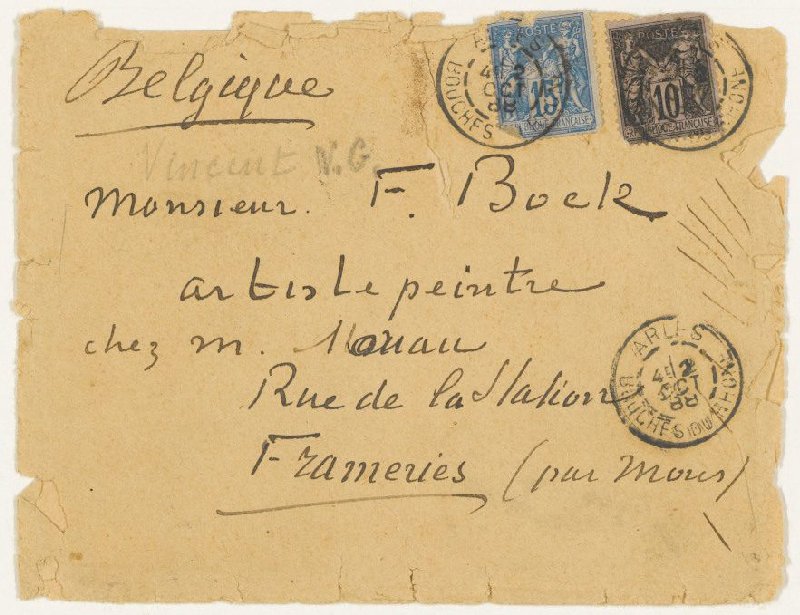 Belgique
POSTE
15
POSTES
10
FRANÇAISE
FRANÇAISE
BOUCHES
2
OCT
88
Vincent V.G.
Monsieur. F. Bock
artiste peintre
chez M.
Rue de la Station
ARLES
2
OCT
88
BOUCHES DU RHONE
Frameries (par Mons)